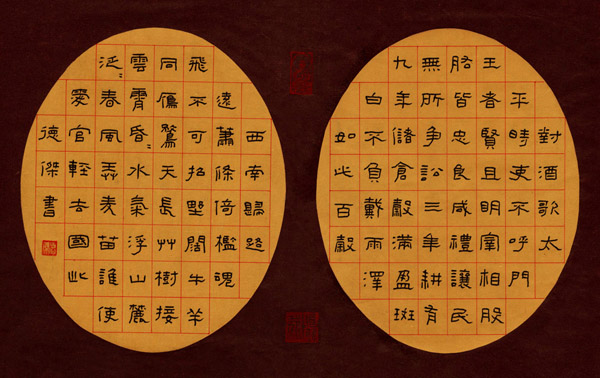 對酒歌太
平時吏不呼門
王者賢且明宰相股
肱皆忠良咸禮讓民
無所爭訟三年耕有
九年儲倉穀滿盈斑
白不負戴雨澤
如此百穀
西南歸路
遠蕭條倚檻魂
飛不可招野闊牛羊
同鴈鶩天長艸樹接
雲霄昏〻水氣浮山麓
泛〻春風弄麥苗誰使
愛官輕去國此
德傑書